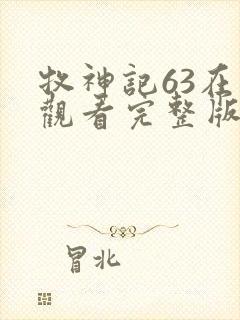 牧神記63在
觀看完整版
冒北